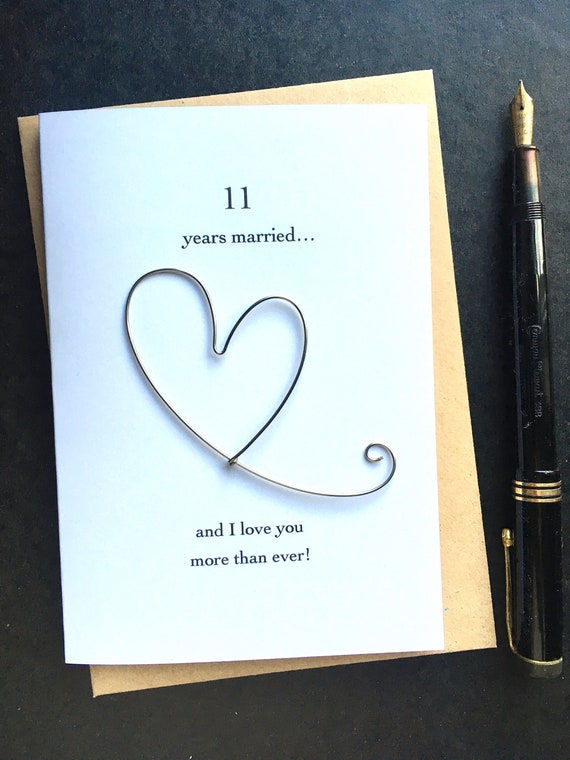 11
years married...
and I love you
more than ever!